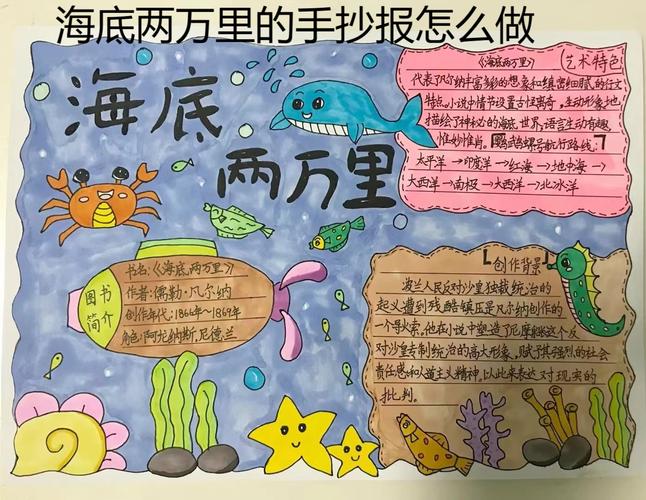 海底两万里的手抄报怎么做
海底
两万里
图书
简介
书名:《海底两万里》
作者:儒勒·凡尔纳
创作年代:1866年~1869年
角色:阿龙纳斯.尼德兰
《海底两万里》
艺术特色
代表了凡尔纳丰富多彩的想象和缜密细腻的行文
特点。小说中情节设置古怪离奇,生动形象地
描绘了神秘的海底世界,语言生动有趣,
惟妙惟肖。鹦鹉螺号航行路线:
太平洋→印度洋→红海→地中海→
大西洋→南极→大西洋→北冰洋
『创作背景』
波兰人民反对沙皇独裁统治的
起义遭到残酷镇压是凡尔纳创作的
一个导火索,他在小说中塑造了尼摩船长这个反
对沙皇专制统治的高大形象,赋予其强烈的社会
责任感和人道主义精神,以此来表达对现实的
批判。